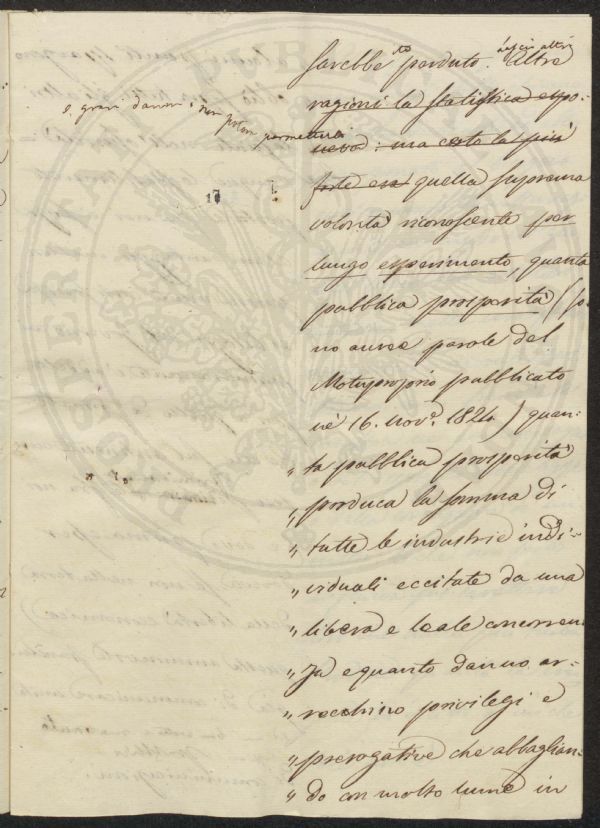 sarebbe perduto. Altre
ragioni la statistica espo-
neva: ma certo la più
forte era quella suprema
volontà riconoscente per
lungo esperimento, quanta
pubblica prosperità (so-
no auree parole del
Motuproprio pubblicato
né 16. Nov.e 1824) quan-
„ ta pubblica prosperità
„ porduca la somma di
„ tutte le industrie indi-
„ viduali eccitate da una
„ libera e leale concorren
„ za e quanto danno ar-
„ rechino privilegi e
„ prerogative che abbaglian-
„ do con molto lume in
e gravi danni: non potea permettersi
17